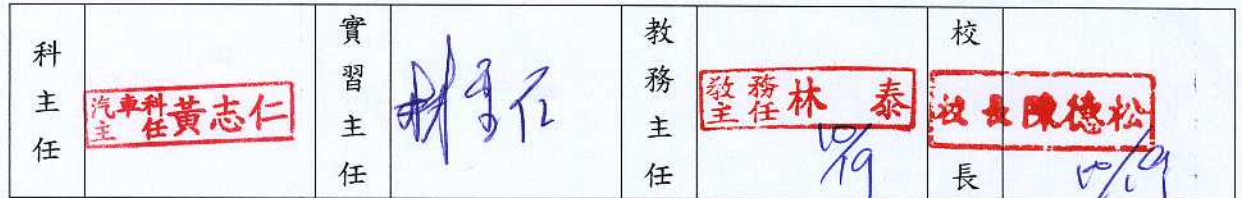 科主任
汽車科主任 黃志仁
實習主任
教務主任
教務主任 林泰
10/19
校長
校長陳德松
10/19